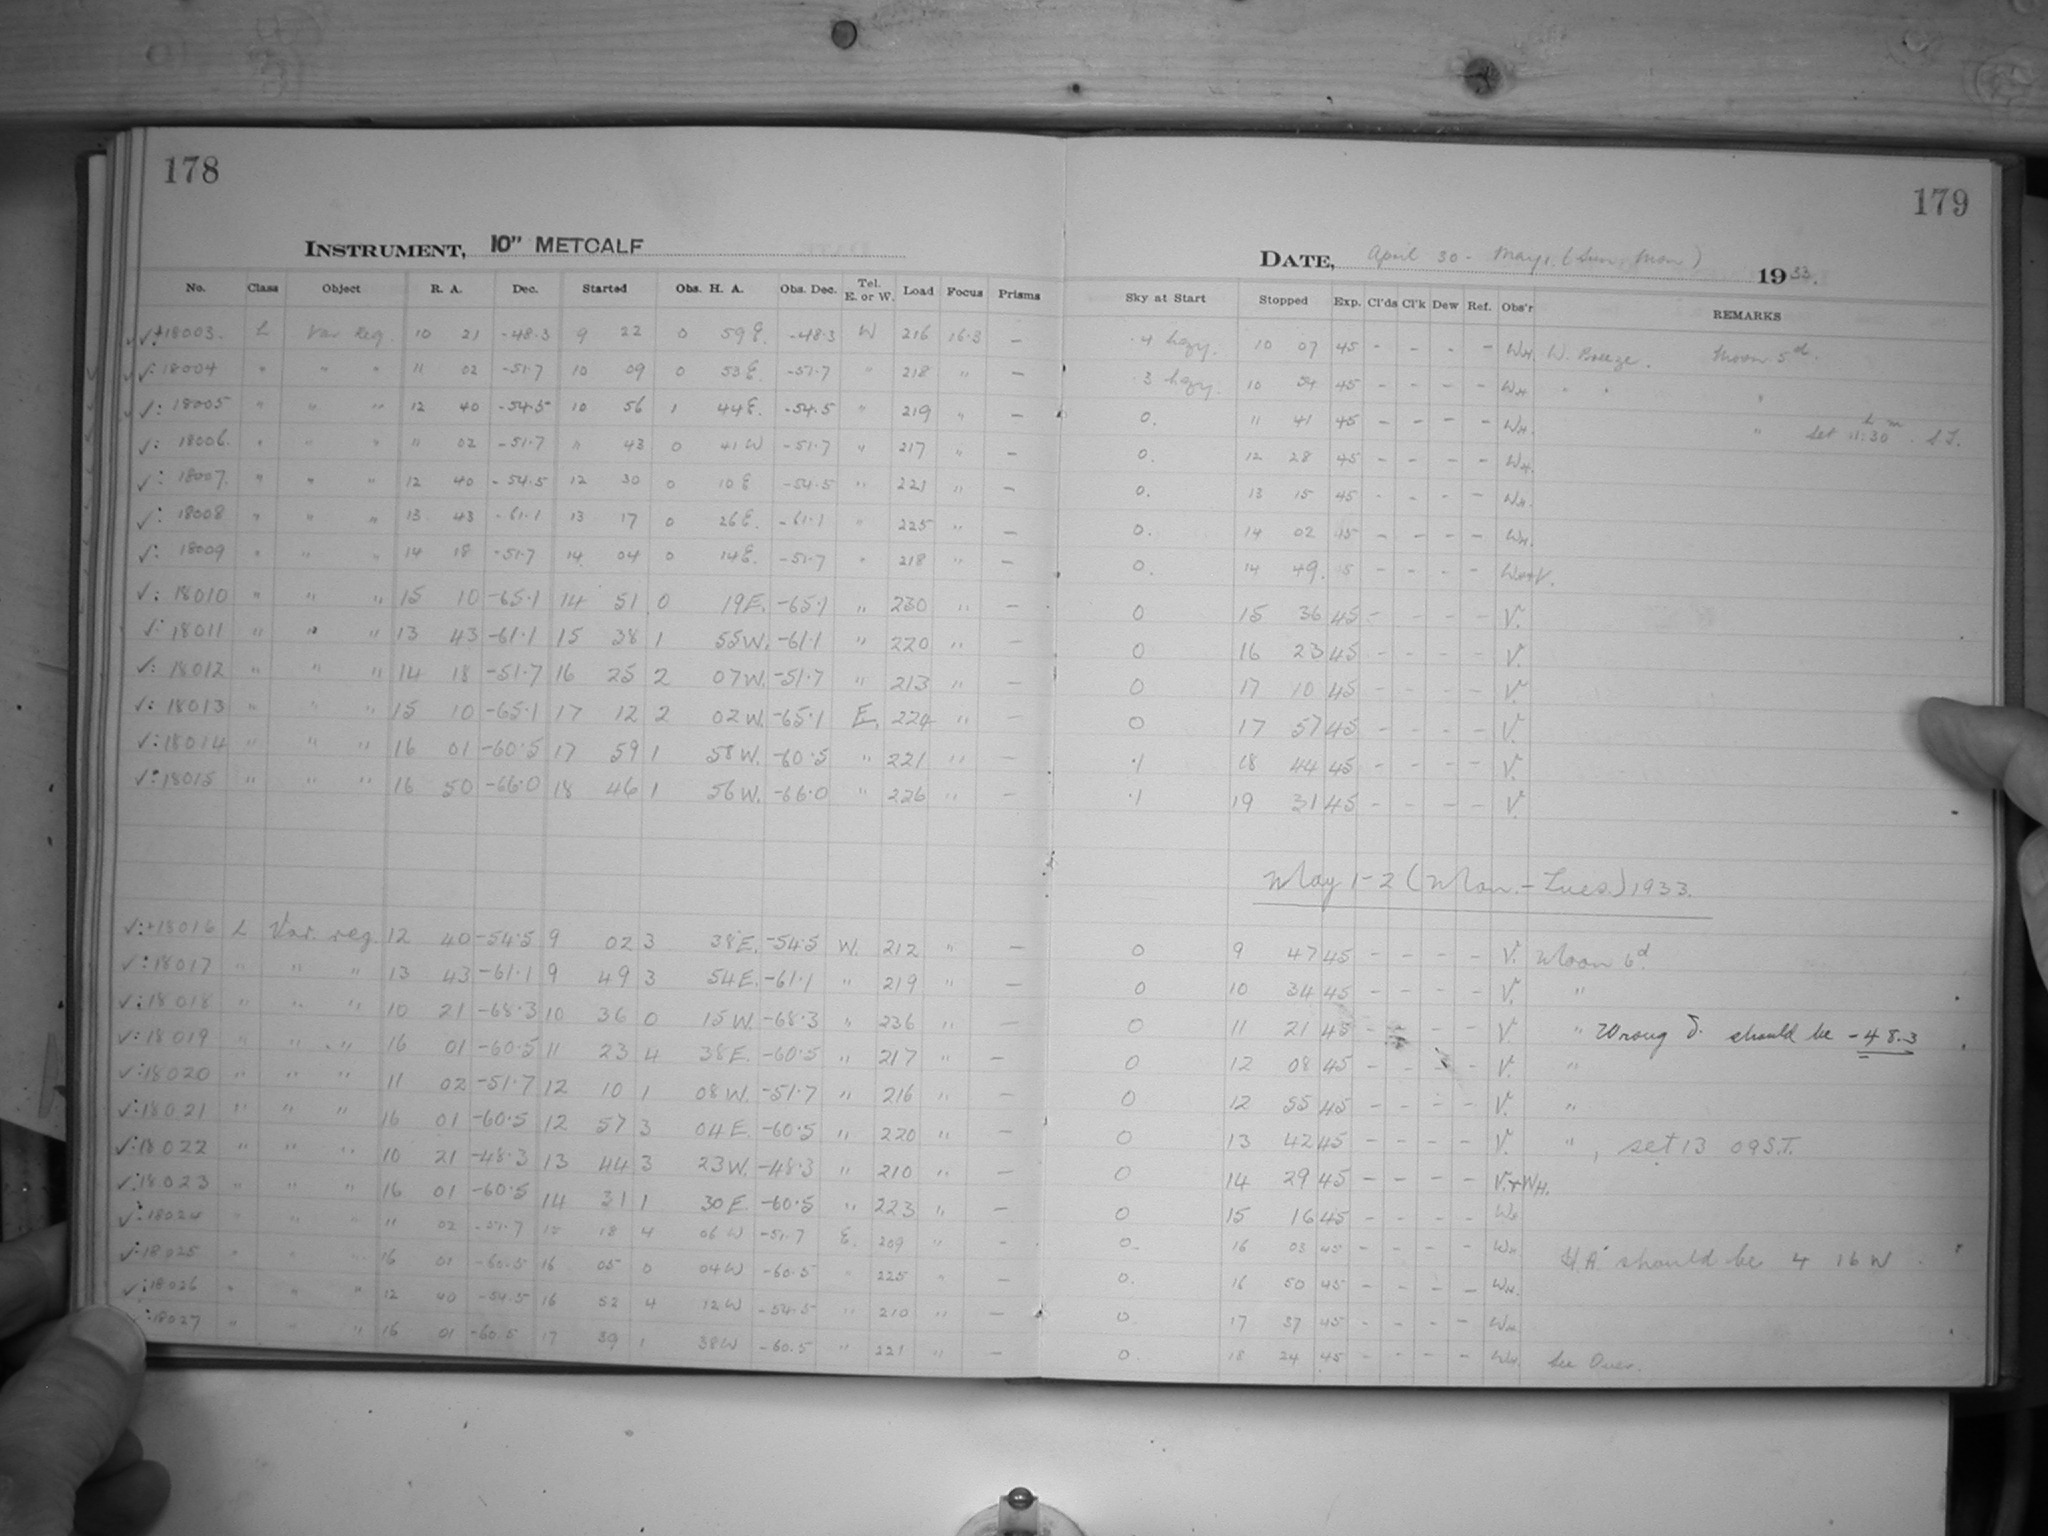 178
INSTRUMENT, 10" METCALF
No. Class Object R. A. Dec. Started Obs. H. A. Obs. Dec. Tel. E. or W. Load Focus Prisms
✓:+18003. L Var Reg. 10 21 -48.3 9 22 0 59 E. -48.3 W 216 16.3 —
✓: 18004 " " " 11 02 -51.7 10 09 0 53 E. -51.7 " 218 " —
✓: 18005 " " " 12 40 -54.5 10 56 1 44 E. -54.5 " 219 " —
✓: 18006. " " " 11 02 -51.7 11 43 0 41 W -51.7 " 217 " —
✓: 18007. " " " 12 40 -54.5 12 30 0 10 E -54.5 " 221 " —
✓: 18008 " " " 13 43 -61.1 13 17 0 26 E. -61.1 " 225 " —
✓: 18009 " " " 14 18 -51.7 14 04 0 14 E. -51.7 " 218 " —
✓: 18010 " " " 15 10 -65.1 14 51 0 19 E. -65.1 " 230 " —
✓: 18011 " " " 13 43 -61.1 15 38 1 55 W. -61.1 " 220 " —
✓: 18012 " " " 14 18 -51.7 16 25 2 07 W. -51.7 " 213 " —
✓: 18013 " " " 15 10 -65.1 17 12 2 02 W. -65.1 E. 224 " —
✓: 18014 " " " 16 01 -60.5 17 59 1 58 W. -60.5 " 221 " —
✓: 18015 " " " 16 50 -66.0 18 46 1 56 W. -66.0 " 226 " —
✓:+18016 L Var. reg. 12 40 -54.5 9 02 3 38 E. -54.5 W. 212 " —
✓: 18017 " " " 13 43 -61.1 9 49 3 54 E. -61.1 " 219 " —
✓: 18018 " " " 10 21 -68.3 10 36 0 15 W. -68.3 " 236 " —
✓: 18019 " " " 16 01 -60.5 11 23 4 38 E. -60.5 " 217 " —
✓: 18020 " " " 11 02 -51.7 12 10 1 08 W. -51.7 " 216 " —
✓: 18021 " " " 16 01 -60.5 12 57 3 04 E. -60.5 " 220 " —
✓: 18022 " " " 10 21 -48.3 13 44 3 23 W. -48.3 " 210 " —
✓: 18023 " " " 16 01 -60.5 14 31 1 30 E. -60.5 " 223 " —
✓: 18024 " " " 11 02 -51.7 15 18 4 06 W -51.7 E. 209 " —
✓: 18025 " " " 16 01 -60.5 16 05 0 04 W -60.5 " 225 " —
✓: 18026 " " " 12 40 -54.5 16 52 4 12 W -54.5 " 210 " —
✓: 18027 " " " 16 01 -60.5 17 39 1 38 W -60.5 " 221 " —
179
DATE, April 30 - May 1. (Sun. Mon) 1933.
Sky at Start Stopped Exp. Cl'ds Cl'k Dew Ref. Obs'r REMARKS
.4 hazy. 10 07 45 - - - - WH. W. Breeze. Moon 5d.
.3 hazy 10 54 45 - - - - WH " " "
0. 11 41 45 - - - - WH. " Set 11h 30m. S.T.
0. 12 28 45 - - - - WH.
0. 13 15 45 - - - - WH.
0. 14 02 45 - - - - WH.
0. 14 49. 45 - - - - WH+V.
0 15 36 45 - - - - V.
0 16 23 45 - - - - V.
0 17 10 45 - - - - V.
0 17 57 45 - - - - V.
.1 18 44 45 - - - - V.
.1 19 31 45 - - - - V.
May 1-2 (Mon.-Tues.) 1933.
0 9 47 45 - - - - V. Moon 6d.
0 10 34 45 - - - - V. "
0 11 21 45 - - - - V. " Wrong δ. should be -48.3
0 12 08 45 - - - - V. "
0 12 55 45 - - - - V. "
0 13 42 45 - - - - V. " , set 13 09 S.T.
0 14 29 45 - - - - V.+WH.
0 15 16 45 - - - - WH
0. 16 03 45 - - - - WH H.A. should be 4 16 W
0. 16 50 45 - - - - WH.
0. 17 37 45 - - - - WH
0. 18 24 45 - - - - WH. See Over.